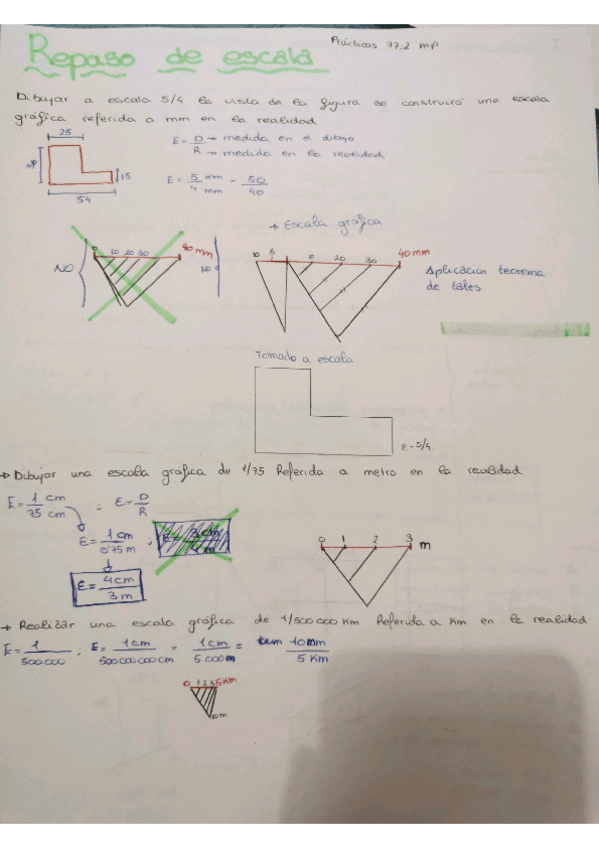 Prácticas 77.2 MP
Repaso de escala
Dibujar a escala 5/4 la vista de la figura se construirá una escala
gráfica referida a mm en la realidad
25
15
54
E = D → medida en el dibujo
R → medida en la realidad
E = 5 mm = 50
4 mm 40
→ Escala gráfica
NO
0 10 20 30 40 mm
NO
10 5 10 20 30 40 mm
Aplicación teorema
de tales
Tomado a escala
E - 5/4.
→ Dibujar una escala gráfica de 1/75 Referida a metro en la realidad
E = 1 cm ; E = D
75 cm R
E = 1 cm ;
0'75 m
E = 4 cm
3 m
0 1 2 3 m
→ Realizar una escala gráfica de 1/500000 Km Referida a Km en la realidad
E = 1 ; E = 1 cm = 1 cm = 10 mm
500 000 5 000 m 5 Km
0 1 2 3 5 Km